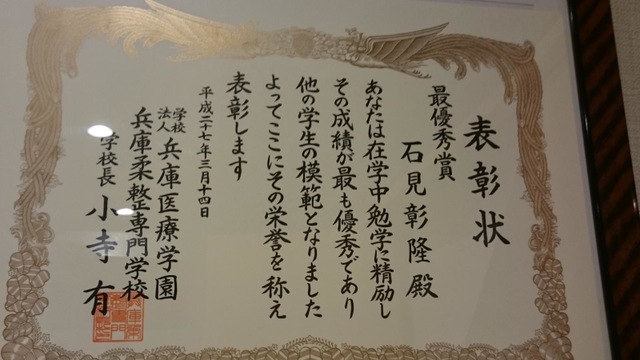 表彰状
最優秀賞
石見彰隆殿
あなたは在学中勉学に精励し
その成績が最も優秀であり
他の学生の模範となりました
よってここにその栄誉を称え
表彰します
平成二十七年三月十四日
学校法人 兵庫医療学園
兵庫柔整専門学校
学校長 小寺有